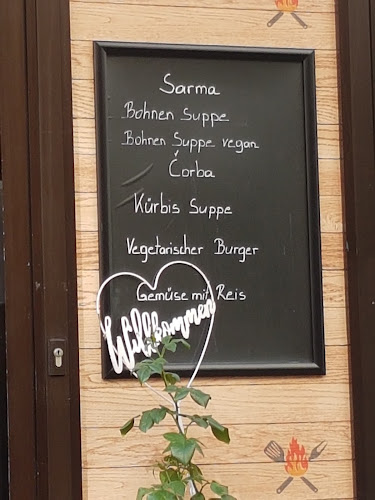 Sarma
Bohnen Suppe
Bohnen Suppe vegan
Čorba
Kürbis Suppe
Vegetarischer Burger
Gemüse mit Reis
Willkommen